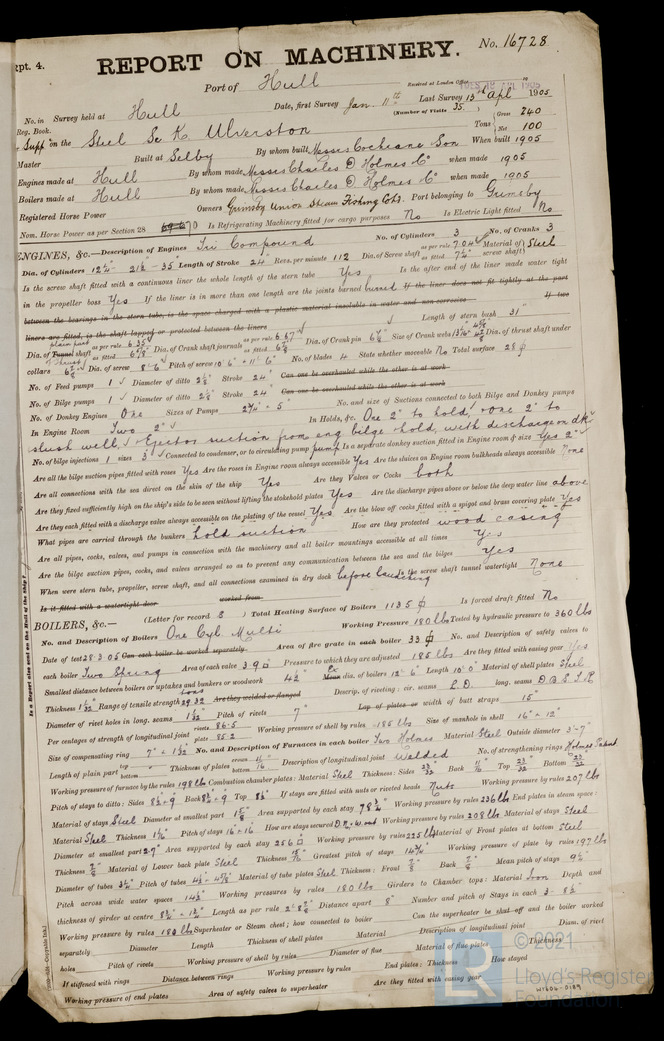 Rpt. 4.
REPORT ON MACHINERY. No. 16728
Port of Hull
Received at London Office
No. in Survey held at Hull Date, first Survey Jan 11th Last Survey 13th Apl 1905
Reg. Book. (Number of Visits 35.)
Supp on the Steel Sc K. Ulverston Tons Gross 240 Net 100
Master Built at Selby By whom built Messrs Cochrane Son When built 1905
Engines made at Hull By whom made Messrs Charles D Holmes Co when made 1905
Boilers made at Hull By whom made Messrs Charles D Holmes Co when made 1905
Registered Horse Power Owners Grimsby Union Steam Fishing Co Ld. Port belonging to Grimsby
Nom. Horse Power as per Section 28 70 Is Refrigerating Machinery fitted for cargo purposes No Is Electric Light fitted No
ENGINES, &c.—Description of Engines Tri Compound No. of Cylinders 3 No. of Cranks 3
Dia. of Cylinders 12¼ - 21½ - 35" Length of Stroke 24" Revs. per minute 112 Dia. of Screw shaft as per rule 7.04 as fitted 7¼" Material of screw shaft Steel
Is the screw shaft fitted with a continuous liner the whole length of the stern tube Yes Is the after end of the liner made water tight
in the propeller boss Yes If the liner is in more than one length are the joints burned burned If the liner does not fit tightly at the part
between the bearings in the stern tube, is the space charged with a plastic material insoluble in water and non-corrosive If two
liners are fitted, is the shaft lapped or protected between the liners Length of stern bush 31"
Dia. of Tunnel shaft as per rule 6.35 as fitted 6⅞" Dia. of Crank shaft journals as per rule 6.67 as fitted 6⅞" Dia. of Crank pin 6⅞" Size of Crank webs Dia. of thrust shaft under
collars 6⅞" Dia. of screw 8'-6" Pitch of screw 10'6" - 11'6" No. of blades 4 State whether moveable No Total surface 28
No. of Feed pumps 1 Diameter of ditto 2⅝" Stroke 24" Can one be overhauled while the other is at work
No. of Bilge pumps 1 Diameter of ditto 2⅝" Stroke 24" Can one be overhauled while the other is at work
No. of Donkey Engines One Sizes of Pumps No. and size of Suctions connected to both Bilge and Donkey pumps
In Engine Room Two 2" In Holds, &c. One 2" to hold, One 2" to
slush well, Ejector suction from eng bilge hold, with discharge on dk
No. of bilge injections 1 sizes 3" Connected to condenser, or to circulating pump pump Is a separate donkey suction fitted in Engine room & size Yes 2"
Are all the bilge suction pipes fitted with roses Yes Are the roses in Engine room always accessible Yes Are the sluices on Engine room bulkheads always accessible None
Are all connections with the sea direct on the skin of the ship Yes Are they Valves or Cocks both
Are they fixed sufficiently high on the ship's side to be seen without lifting the stokehold plates Yes Are the discharge pipes above or below the deep water line above
Are they each fitted with a discharge valve always accessible on the plating of the vessel Yes Are the blow off cocks fitted with a spigot and brass covering plate Yes
What pipes are carried through the bunkers hold suction How are they protected wood casing
Are all pipes, cocks, valves, and pumps in connection with the machinery and all boiler mountings accessible at all times Yes
Are the bilge suction pipes, cocks, and valves arranged so as to prevent any communication between the sea and the bilges Yes
When were stern tube, propeller, screw shaft, and all connections examined in dry dock before launching Is the screw shaft tunnel watertight None
Is it fitted with a watertight door worked from
BOILERS, &c.— (Letter for record S) Total Heating Surface of Boilers 1135 Is forced draft fitted No
No. and Description of Boilers One Cyl Multi Working Pressure 180 lbs Tested by hydraulic pressure to 360 lbs
Date of test 28.3.05 Can each boiler be worked separately Area of fire grate in each boiler 33 No. and Description of safety valves to
each boiler Two Spring Area of each valve 3.90 Pressure to which they are adjusted 185 lbs Are they fitted with easing gear Yes
Smallest distance between boilers or uptakes and bunkers or woodwork 4½" Mean dia. of boilers 12'6" Length 10'0" Material of shell plates Steel
Thickness Range of tensile strength 29.32 tons Are they welded or flanged Descrip. of riveting: cir. seams L.D. long. seams D.B.S.T.R
Diameter of rivet holes in long. seams Pitch of rivets 7" Lap of plates or width of butt straps 15"
Per centages of strength of longitudinal joint rivets 86.5 plate 85.2 Working pressure of shell by rules 185 lbs Size of manhole in shell 16" × 12"
Size of compensating ring No. and Description of Furnaces in each boiler Two Holmes Material Steel Outside diameter 3'-7"
Length of plain part top bottom Thickness of plates crown bottom Description of longitudinal joint Welded No. of strengthening rings Holmes Patent
Working pressure of furnace by the rules 198 lb Combustion chamber plates: Material Steel Thickness: Sides 23/32 Back 11/16 Top 23/32 Bottom 23/32
Pitch of stays to ditto: Sides Back Top If stays are fitted with nuts or riveted heads Nuts Working pressure by rules 207 lbs
Material of stays Steel Diameter at smallest part Area supported by each stay 78¾ Working pressure by rules 236 lb End plates in steam space:
Material Steel Thickness Pitch of stays 16 × 16 How are stays secured D.N. & W. Working pressure by rules 208 lb Material of stays Steel
Diameter at smallest part 2.7" Area supported by each stay 256 Working pressure by rules 225 lb Material of Front plates at bottom Steel
Thickness Material of Lower back plate Steel Thickness Greatest pitch of stays 14¾" Working pressure of plate by rules 197 lbs
Diameter of tubes Pitch of tubes Material of tube plates Steel Thickness: Front Back Mean pitch of stays 9½"
Pitch across wide water spaces 14½" Working pressures by rules 180 lbs Girders to Chamber tops: Material Iron Depth and
thickness of girder at centre Length as per rule Distance apart 8" Number and pitch of Stays in each 3 - 8½"
Working pressure by rules 180 lbs Superheater or Steam chest; how connected to boiler Can the superheater be shut off and the boiler worked
separately Diameter Length Thickness of shell plates Material Description of longitudinal joint Diam. of rivet
holes Pitch of rivets Working pressure of shell by rules Diameter of flue Material of flue plates Thickness
If stiffened with rings Distance between rings Working pressure by rules End plates: Thickness How stayed
Working pressure of end plates Area of safety valves to superheater Are they fitted with easing gear
Is a Report also sent on the Hull of the Ship?
© 2021
Lloyd's Register
Foundation
W1606-0189